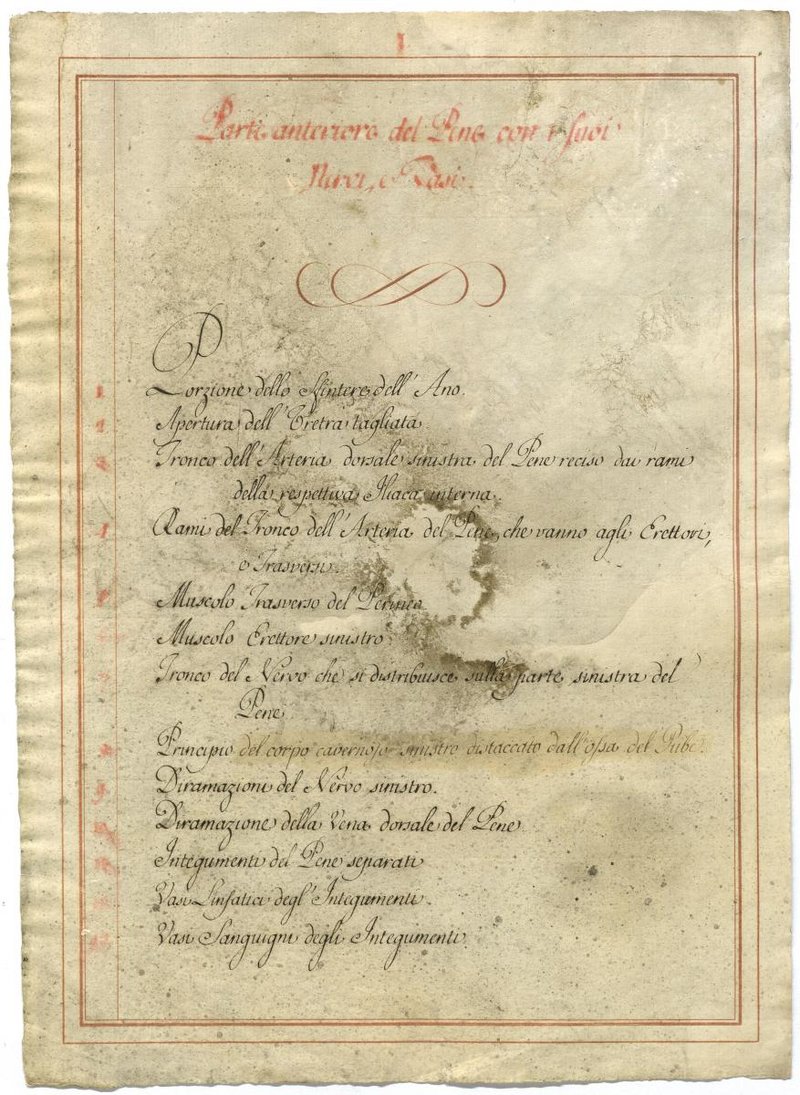 I
Parte anteriore del Pene con i suoi
Nervi, e Vasi.
1 Porzione dello Sfintere dell' Ano.
2 Apertura dell' Uretra tagliata
3 Tronco dell' Arteria dorsale sinistra del Pene reciso dai rami
della respettiva Iliaca interna.
Rami del Tronco dell' Arteria del Pene, che vanno agli Erettori,
e Trasversi.
Muscolo Trasverso del Perineo
Muscolo Erettore sinistro
Tronco del Nervo che si distribuisce sulla parte sinistra del
Pene
Principio del corpo cavernoso sinistro distaccato dall' ossa del Pube.
Diramazioni del Nervo sinistro.
Diramazione della Vena dorsale del Pene
Integumenti del Pene separati
Vasi Linfatici degl' Integumenti.
Vasi Sanguigni degli Integumenti